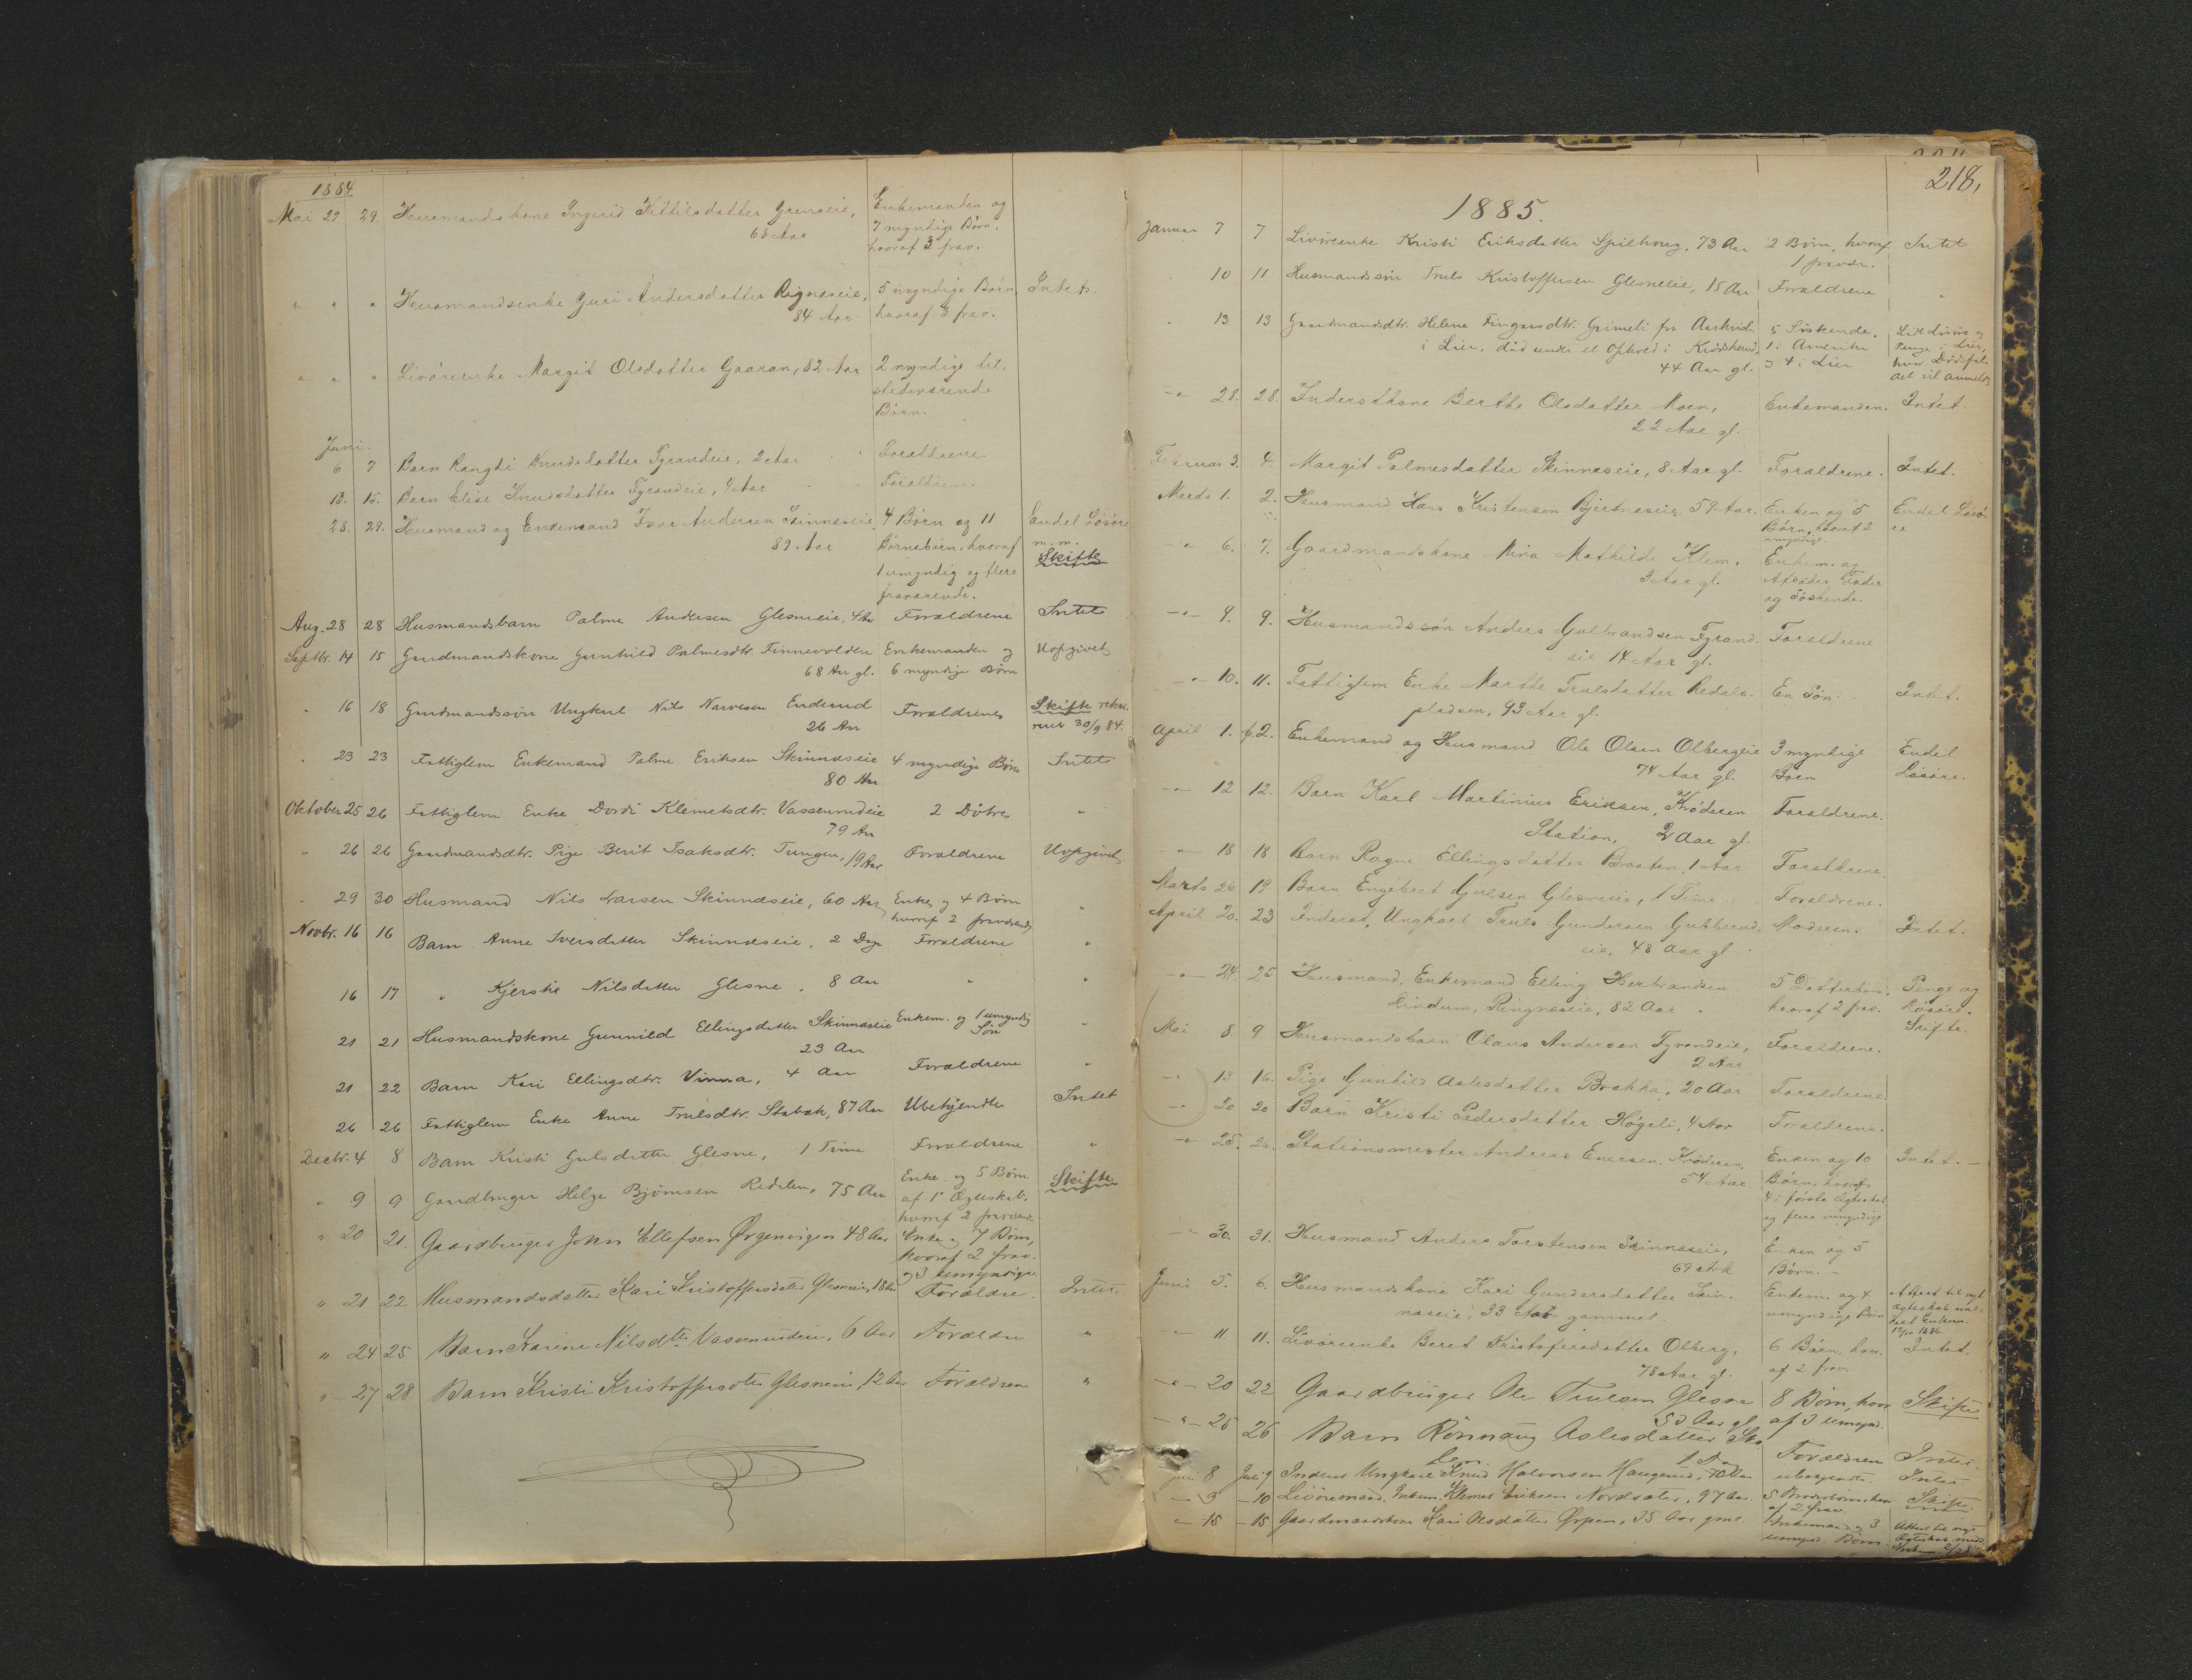 1884
Mai 29 29. Husmandskone Ingerid Kittilsdatter Grenseie, Enkemanden og
68 Aar 7 myndige Børn.
hvoraf 3 frav.
" " " Husmandsenke Guri Andersdatter Rignæseie, 5 myndige Børn, Intet.
84 Aar hvoraf 3 frav.
" " " Livørenke Margit Olsdatter Gaaran, 82 Aar 2 myndige til.
stedeværende
Børn.
Juni.
6 7 Barn Rangdi Knudsdatter Fyrandeie, 2 Aar Forældrene
13. 15. Barn Elise Knudsdatter Fyrandeie, 4 Aar Forældrene.
28. 29. Husmand og Enkemand Ivar Andersen Skinnæseie, 4 Børn og 11 Endel Løsøre
89 Aar Børnebørn, hvoraf m. m.
1 umyndig og flere Skifte
fraværende.
Aug. 28 28 Husmandsbarn Palme Andersen Glesneeie, 4 Aar Forældrene Intet
Septbr. 14 15 Gaardmandskone Gunhild Palmesdtr. Finnevolden Enkemanden og Uopgivet
68 Aar gl. 6 myndige Børn
" 16 18 Gaardmandssøn Ungkarl Nils Narvesen Enderud Forældrene Skifte rekvi-
26 Aar reret 30/9 84.
" 23 23 Fattiglem Enkemand Palme Eriksen Skinnæseie 4 myndige Børn Intet
80 Aar
Oktober 25 26 Fattiglem Enke Dordi Klemetsdtr. Vassenrudeie 2 Døtre "
79 Aar
" 26 26 Gaardmandsdtr. Pige Berit Isaksdtr. Tungen, 19 Aar Forældrene Uopgivet
" 29 30 Husmand Nils Larsen Skinnæseie, 60 Aar Enke og 4 Børn "
hvoraf 2 fraværende
Novbr. 16 16 Barn Anne Iversdatter Skinnæseie, 2 Dage Forældrene "
16 17 " Kjerstie Nilsdatter Glesne, 8 Aar " "
21 21 Husmandskone Gunnild Ellingsdatter Skinnæseie Enkem. og 1 umyndig "
23 Aar Søn
21 22 Barn Kari Ellingsdtr. Vinna, 4 Aar Forældrene "
26 26 Fattiglem Enke Anne Trulsdtr. Stabæk, 87 Aar Ubekjendte Intet
Decbr. 4 8 Barn Kristi Gulsdatter Glesne, 1 Time Forældrene "
" 9 9 Gaardbruger Helge Bjørnsen Redalen, 75 Aar Enke og 5 Børn Skifte
af 1ste Ægteskab,
hvoraf 2 fraværende
" 20 21. Gaardbruger John Ellefsen Ørgenvigen 48 Aar Enke og 7 Børn,
hvoraf 2 frav.
og 3 umyndige.
" 21 22 Husmandsdatter Kari Kristoffersdatter Glesneeie, 18 Aar Forældre. Intet.
" 24 25 Barn Karine Nilsdtr. Vassenrudeie, 6 Aar Forældre "
" 27 28 Barn Kristi Kristoffersdtr Glesneeie, 12 Aar Forældrene "
218,
1885.
Januar 7 7 Livørenke Kristi Eriksdatter Spilhoug, 73 Aar 2 Børn, hvoraf Intet
1 fravær.
10 11 Husmandssøn Truls Kristoffersen Glesneeie, 15 Aar Forældrene "
13 13 Gaardmandsdtr. Helene Fingarsdtr. Grimeli fra
i Lier, død under et Ophold i Krødsherred,
44 Aar gl.
5 Søskende,
1 i Amerika
og 4 i Lier
Penge i Lier,
hvor Dødsfal-
det vil anmeldes
" 28. 28. Inderstkone Berthe Olsdatter Moen, Enkemanden. Intet.
22 Aar gl.
Februar 3. 4. Margit Palmesdatter Skinnæseie, 8 Aar gl. Forældrene. Intet.
Marts 1. 2. Husmand Hans Kristensen Bjertnæseie, 59 Aar. Enken og 5 Endel Løsø-
Børn, hvoraf 2 re
umyndige.
" 6. 7. Gaardmandskone Mina Mathilde Klem, Enkem. og
Aar gl. Afdødes Fader
og Søskende.
" 9. 9. Husmandssøn Anders Gulbrandsen Fyrand- Forældrene
eie 14 Aar gl.
" 10. 11. Fattiglem Enke Marthe Trulsdatter Redals- En Søn. Intet.
pladsen, 93 Aar gl.
April 1. 2. Enkemand og Husmand Ole Olsen Olbergeie 3 myndige Endel
74 Aar gl. Børn Løsøre.
" 12 12. Barn Karl Martinius Eriksen, Krøderen Forældrene.
Station, 2 Aar gl.
" 18 18 Barn Ragne Ellingsdatter Braaten, 1 Aar Forældrene
Marts 26 19 Barn Engebret Gulsen Glesneeie, 1 Time Forældrene.
April 20. 23 Inderst, Ungkarl Truls Gundersen Gubberud- Moderen. Intet.
eie, 48 Aar gl
" 24. 25 Husmand, Enkemand Elling Herbrandsen 5 Datterbørn, Penge og
Lindum, Ringnæseie, 82 Aar hvoraf 2 frav. Løsøre.
Skifte.
Mai 8 9 Husmandsbarn Olaus Andersen Fyrandeie, Forældrene.
2 Aar
" 13 16. Pige Gunhild Aslesdatter Brakka, 20 Aar Forældrene
" 20 20 Barn Kristi Pedersdatter Høgeli, 4 Aar Forældrene.
" 25. 26. Stationsmester Andreas Enersen, Krøderen Enken og 10 Intet.
54 Aar Børn, hvoraf
4 i første Ægteskab
og flere umyndige
" 30. 31. Husmand Anders Torstensen Skinnæseie, Enken og 5
69 Aar Børn.
Juni 5. 6. Husmandskone Kari Gundersdatter Skin-
næseie, 33 Aar gammel.
Enkem. og 4
umyndige Børn
Attest til nyt
Ægteskab
1886.
" 11. 11. Livørenke Beret Kristofersdatter Olberg, 6 Børn, hvor- Intet.
78 Aar gl. af 2 frav.
" 20 22 Gaardbruger Ole Trulsen Glesne 8 Børn, hvor- Skifte
53 Aar gl. af 3 umynd.
" 25 26 Barn Rønnaug Aslesdatter Forældrene Intet.
Juli 8 Juli 9 Inderst Ungkarl Knud Halvorsen Haugerud, 70 Aar ubekjendte. Intet
" 9 10 Livøremand, Enkem. Klemet Eriksen Nordsæter, 97 Aar. 5 Broderbørn, hvor- Skifte
af 2 frav.
" 15 15 Gaardmandskone Kari Olsdatter Ørpen, 35 Aar gml. Enkemand og 3
umynd. Børn.
Attest til nyt
Ægteskab med